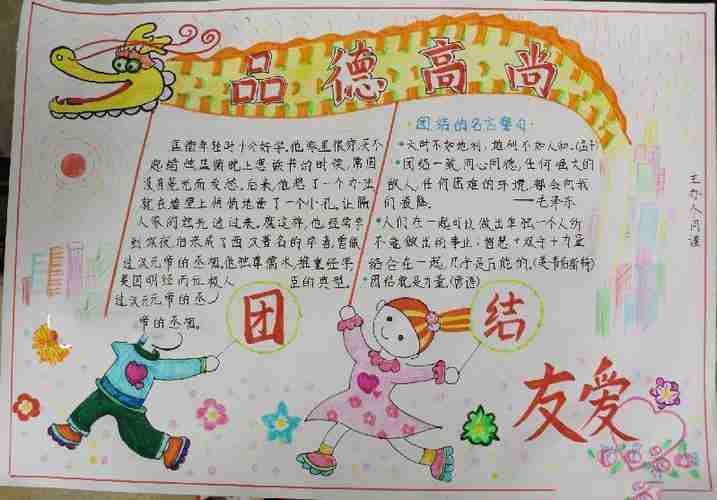 品德高尚
匡衡年轻时十分好学。他家里很穷,买不
起蜡烛,匡衡晚上想读书的时候,常因
没有亮光而发愁。后来,他想了一个办法,
就在墙上悄悄地凿了一个小孔,让隔
人家的烛光透过来。就这样,他经常学
到深夜,后来成了西汉著名的学者,曾做
过汉元帝的丞相。他独尊儒术,推重经学
是因明经而位极人 臣的典型。
过汉元帝的丞
帝的丞相。
·团结的名言警句·
•天时不如地利,地利不如人和。(孟子)
•团结一致,同心同德,任何强大的
敌人,任何困难的环境,都会向我
们投降。 ——毛泽东
•人们在一起可以做出单独一个人所
不能做出的事业;智慧+双手+力量
结合在一起,几乎是万能的。(美韦伯斯特)
•团结就是力量。(谚语)
团
结
友爱